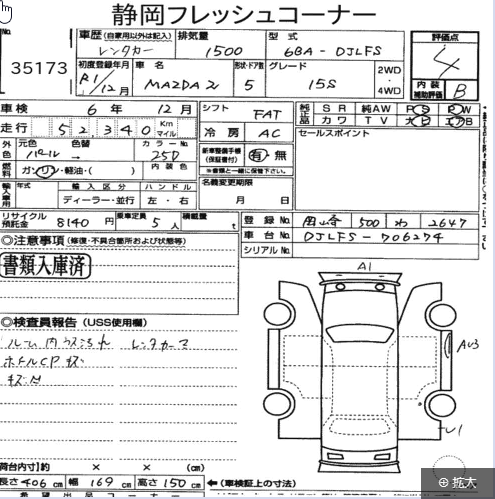 静岡フレッシュコーナー
No.
35173
車歴 (自家用以外は記入)
レンタカー
排気量
1500
型式
6BA-DJLFS
評価点
4
初度登録年月
R1/12月
車名
MAZDA2
形状・ドア数
5
グレード
15S
2WD
4WD
内装
補助評価
B
車検
6年 12月
シフト
FAT
純正品
SR 純AW PS PW
カワ TV ナビ エアB
走行
52,340
Km
マイル
冷房
AC
セールスポイント
外色
元色
パール
色替
→
カラーNo.
25D
新車整備手帳
(保証書付)
有・無
※書類と一緒に保管下さい。
燃料
ガソリン・軽油・( )
内装色
名義変更期限
月 日
輸入車用
年式
輸入区分
ハンドル
ディーラー・並行
左・右
リサイクル
預託金
8140円
乗車定員
5人
積載量
t
登録No.
500 わ 2647
車台No.
DJLFS-706274
シリアルNo.
◎注意事項 (修復・不具合箇所および状態等)
書類入庫済
A1
◎検査員報告 (USS使用欄)
AU3
U1
荷台内寸 約 × × (cm)
長さ 406cm 幅 169cm 高さ 150cm ←(車検証上の寸法)
拡大